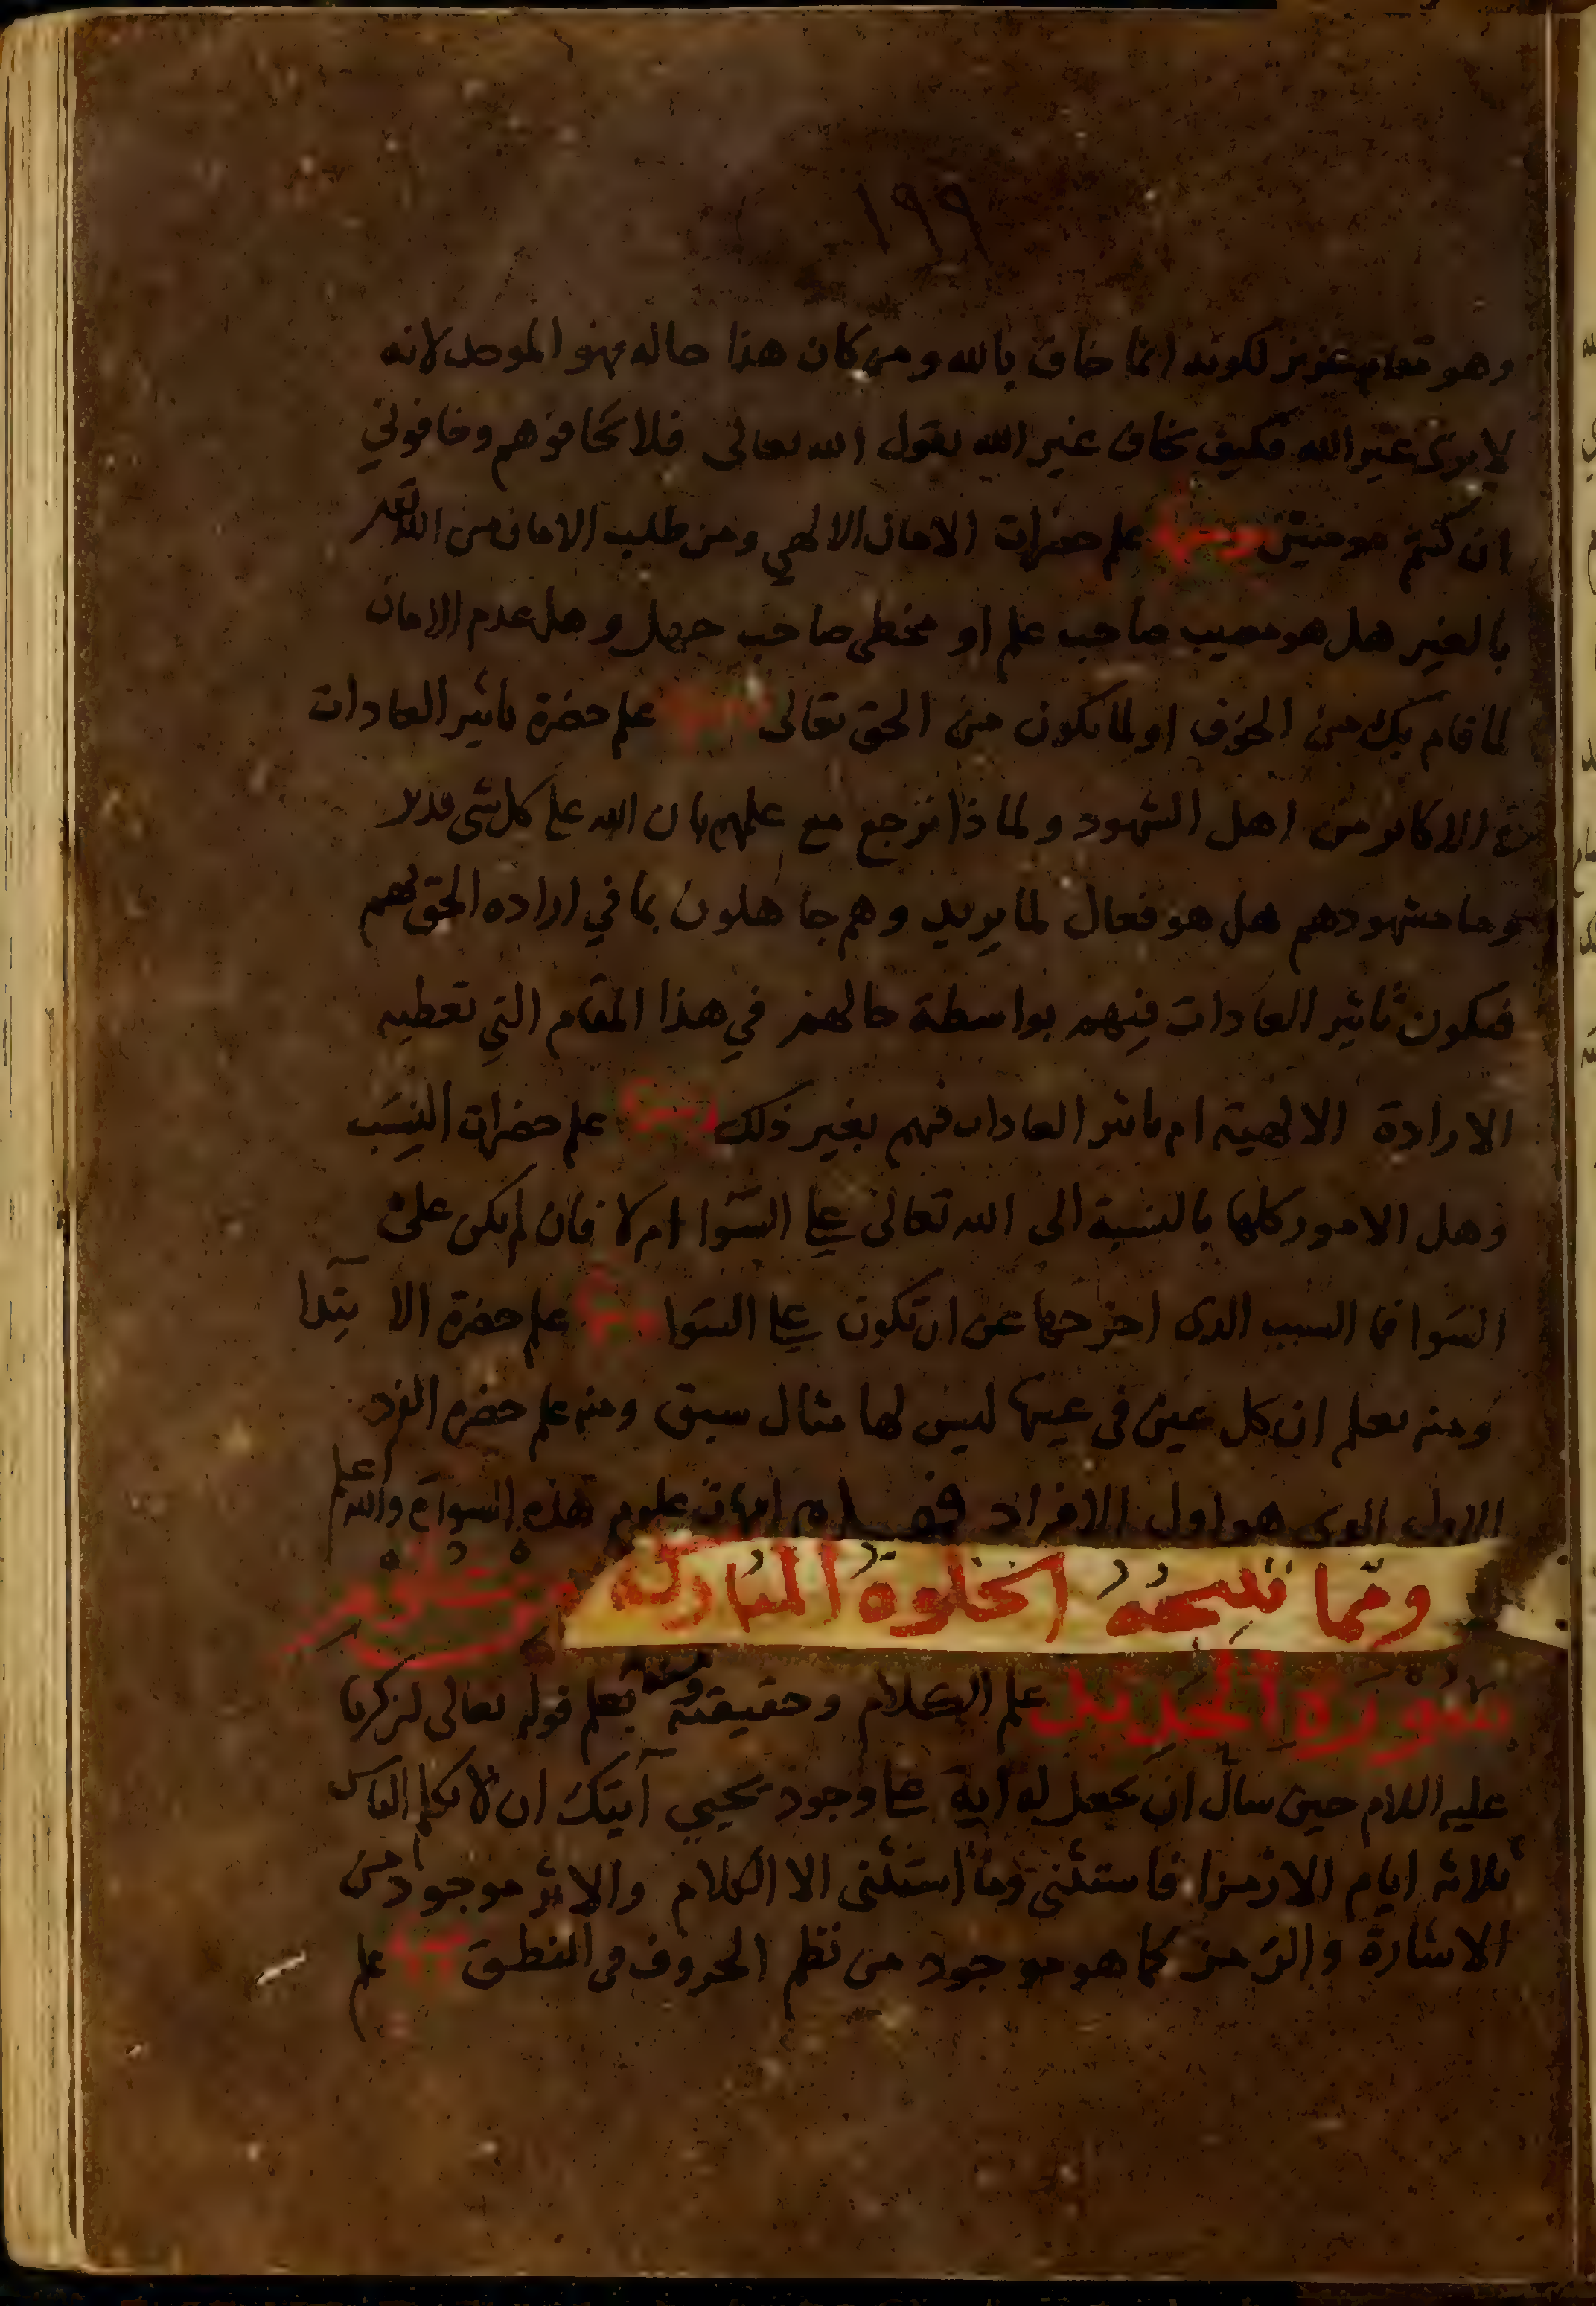 ١٩٩
وهو مقام عزيز لكونه انما خاف بالله ومن كان هذا حاله فهو الموحد لانه
لا يرى غير الله فكيف يخاف غير الله يقول الله تعالى فلا تخافوهم وخافوني
ان كنتم مومنين ومنها علم حضرات الامان الالهي ومن طلب الامان من الله
بالغير هل هو مصيب صاحب علم او مخطى صاحب جهل وهل عدم الامان
لما قام بك من الخوف او لما يكون من الحق تعالى ومنها علم حضرة تاثير العادات
في الاكابر من اهل الشهود ولماذا ترجع مع علمهم بان الله على كل شى قدير
وما مشهودهم هل هو فعال لما يريد وهم جاهلون بما في اراده الحق لهم
فيكون تاثير العادات فيهم بواسطة حالهم في هذا المقام التي تعطيه
الارادة الالهية ام تاثير العادات فيهم بغير ذلك ومنها علم حضرات النسب
وهل الامور كلها بالنسبة الى الله تعالى على السوا ام لا فان لم يكن على
السوا فما السبب الذى اخرجها عن ان تكون على السوا ومنها علم حضرة الابتدا
ومنه يعلم ان كل عين في عينها ليس لها مثال سبق ومنه علم حضره الفرد
الاول الذى هو اول الافراد فهذه امهات علوم هذه السورة والله اعلم
ومما نتيجته الخلوة المباركة من علوم
سورة الحديد علم الكلام وحقيقته ومنه يعلم قوله تعالى لزكريا
عليه السلام حين سال ان يجعل له اية على وجود يحيي آيتك ان لا تكلم الناس
ثلاثه ايام الا رمزا فاستثنى وما استثنى الا الكلام والاثر موجود من
الاشارة والرمز كما هو موجود من نظم الحروف في النطق ومنها علم